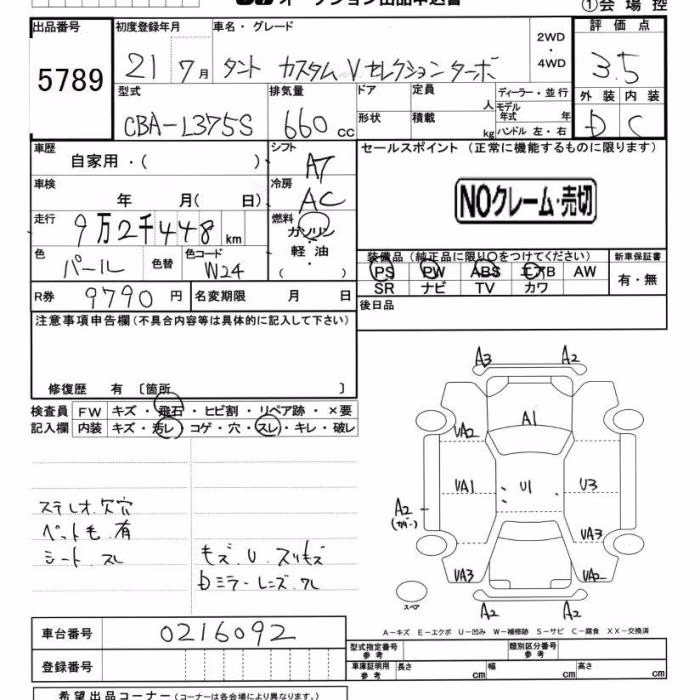 オークション出品申込書
①会場控
出品番号 初度登録年月 車名・グレード 2WD ・ 4WD 評価点
5789 21 7月 タント カスタム Vセレクションターボ 3.5
型式 排気量 ドア 定員 人 ディーラー・並行 外装 内装
CBA-L375S 660cc 形状 積載 kg モデル年式 年 D C
ハンドル 左・右
車歴 シフト セールスポイント (正常に機能するものに限ります)
自家用・( ) AT
車検 冷房
年 月( 日) AC NOクレーム・売切
走行 燃料
9万2千448km ガソリン
色 色替 色コード 軽油 装備品(純正品に限り○をつけてください) 新車保証書
パール W24 ・( ) PS PW ABS エアB AW 有・無
SR ナビ TV カワ
R券 9790円 名変期限 月 日 後日品
注意事項申告欄(不具合内容等は具体的に記入して下さい)
修復歴 有 〔箇所 〕
検査員 FW キズ・飛石・ヒビ割・リペア跡・×要
記入欄 内装 キズ・汚レ・コゲ・穴・スレ・キレ・破レ
A3 A2
A1
UA2
UA1 U1 U3
A2
UA3
UA3 UA2
スペア
A2 A2
ステレオ.欠穴
ペット毛.有
シート.スレ
モズ.U.スリキズ
Dミラーレンズ.ワレ
A-キズ E-エクボ U-凹み W-補修跡 S-サビ C-腐食 XX-交換済
車台番号 0216092
型式指定番号 参考 類別区分番号 参考
登録番号 車庫証明用 参考 長さ cm 幅 cm 高さ cm
希望出品コーナー(コーナーは各会場により異なります。)